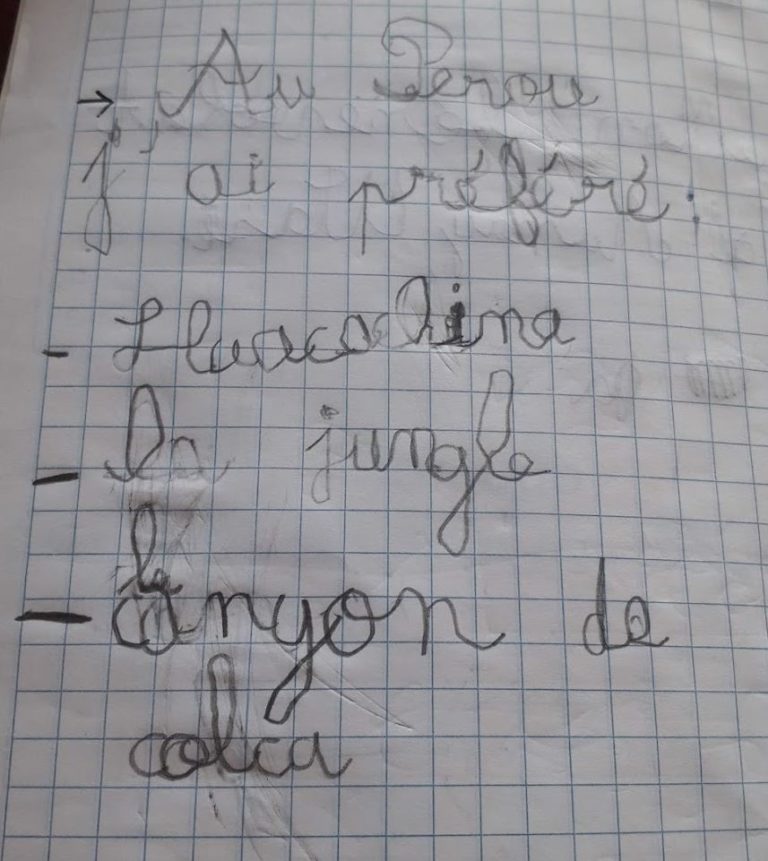 → Au Perou
j'ai préféré :
- Huacachina
- la jungle
le
- canyon de
colca